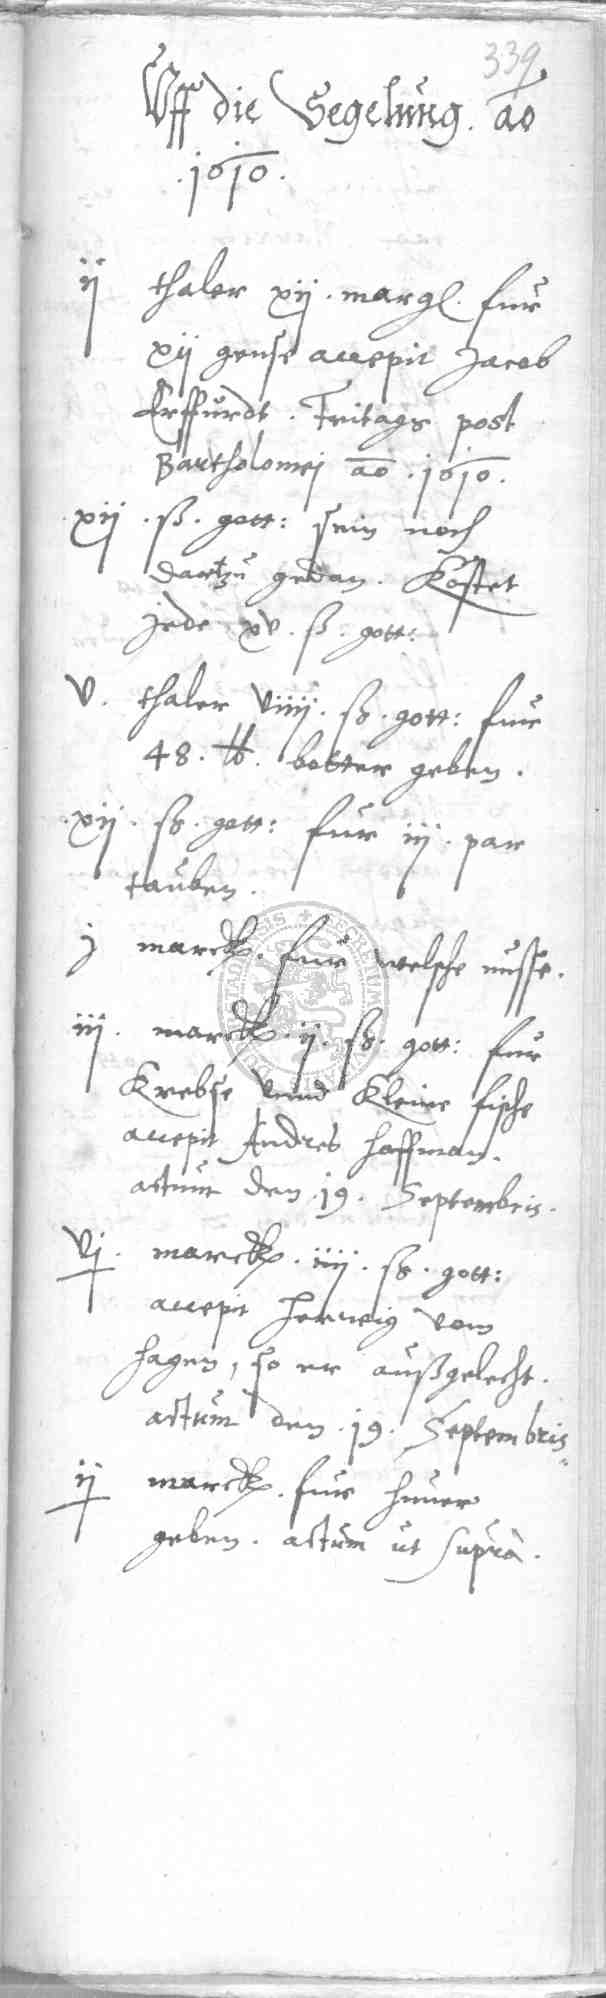 339
Uff die Segelung. ao
.1610.
ij thaler xij. margl. fur
xij gense accepit Jacob
Erffurdt. Fritags post
Bartholomej ao .1610.
.xij. ß. gott: sein noch
dartzu gethan. Kostet
jede xv. ß. gott:
V. thaler viiij. ß. gott: fur
48. ℔. botter geben.
.xij. ß. gott: fur iij. par
tauben.
j marck. fur welsche nusse.
iij. marck. ij. ß. gott: fur
Krebse vnnd Kleine fische
accepit Andres Hoffman.
actum den .19. Septembris.
Vj. marck. iiij. ß. gott:
accepit Herwig vom
Hagen, so er außgelecht.
actum den .19. Septembris
ij marck. fur huner
geben. actum ut supra.